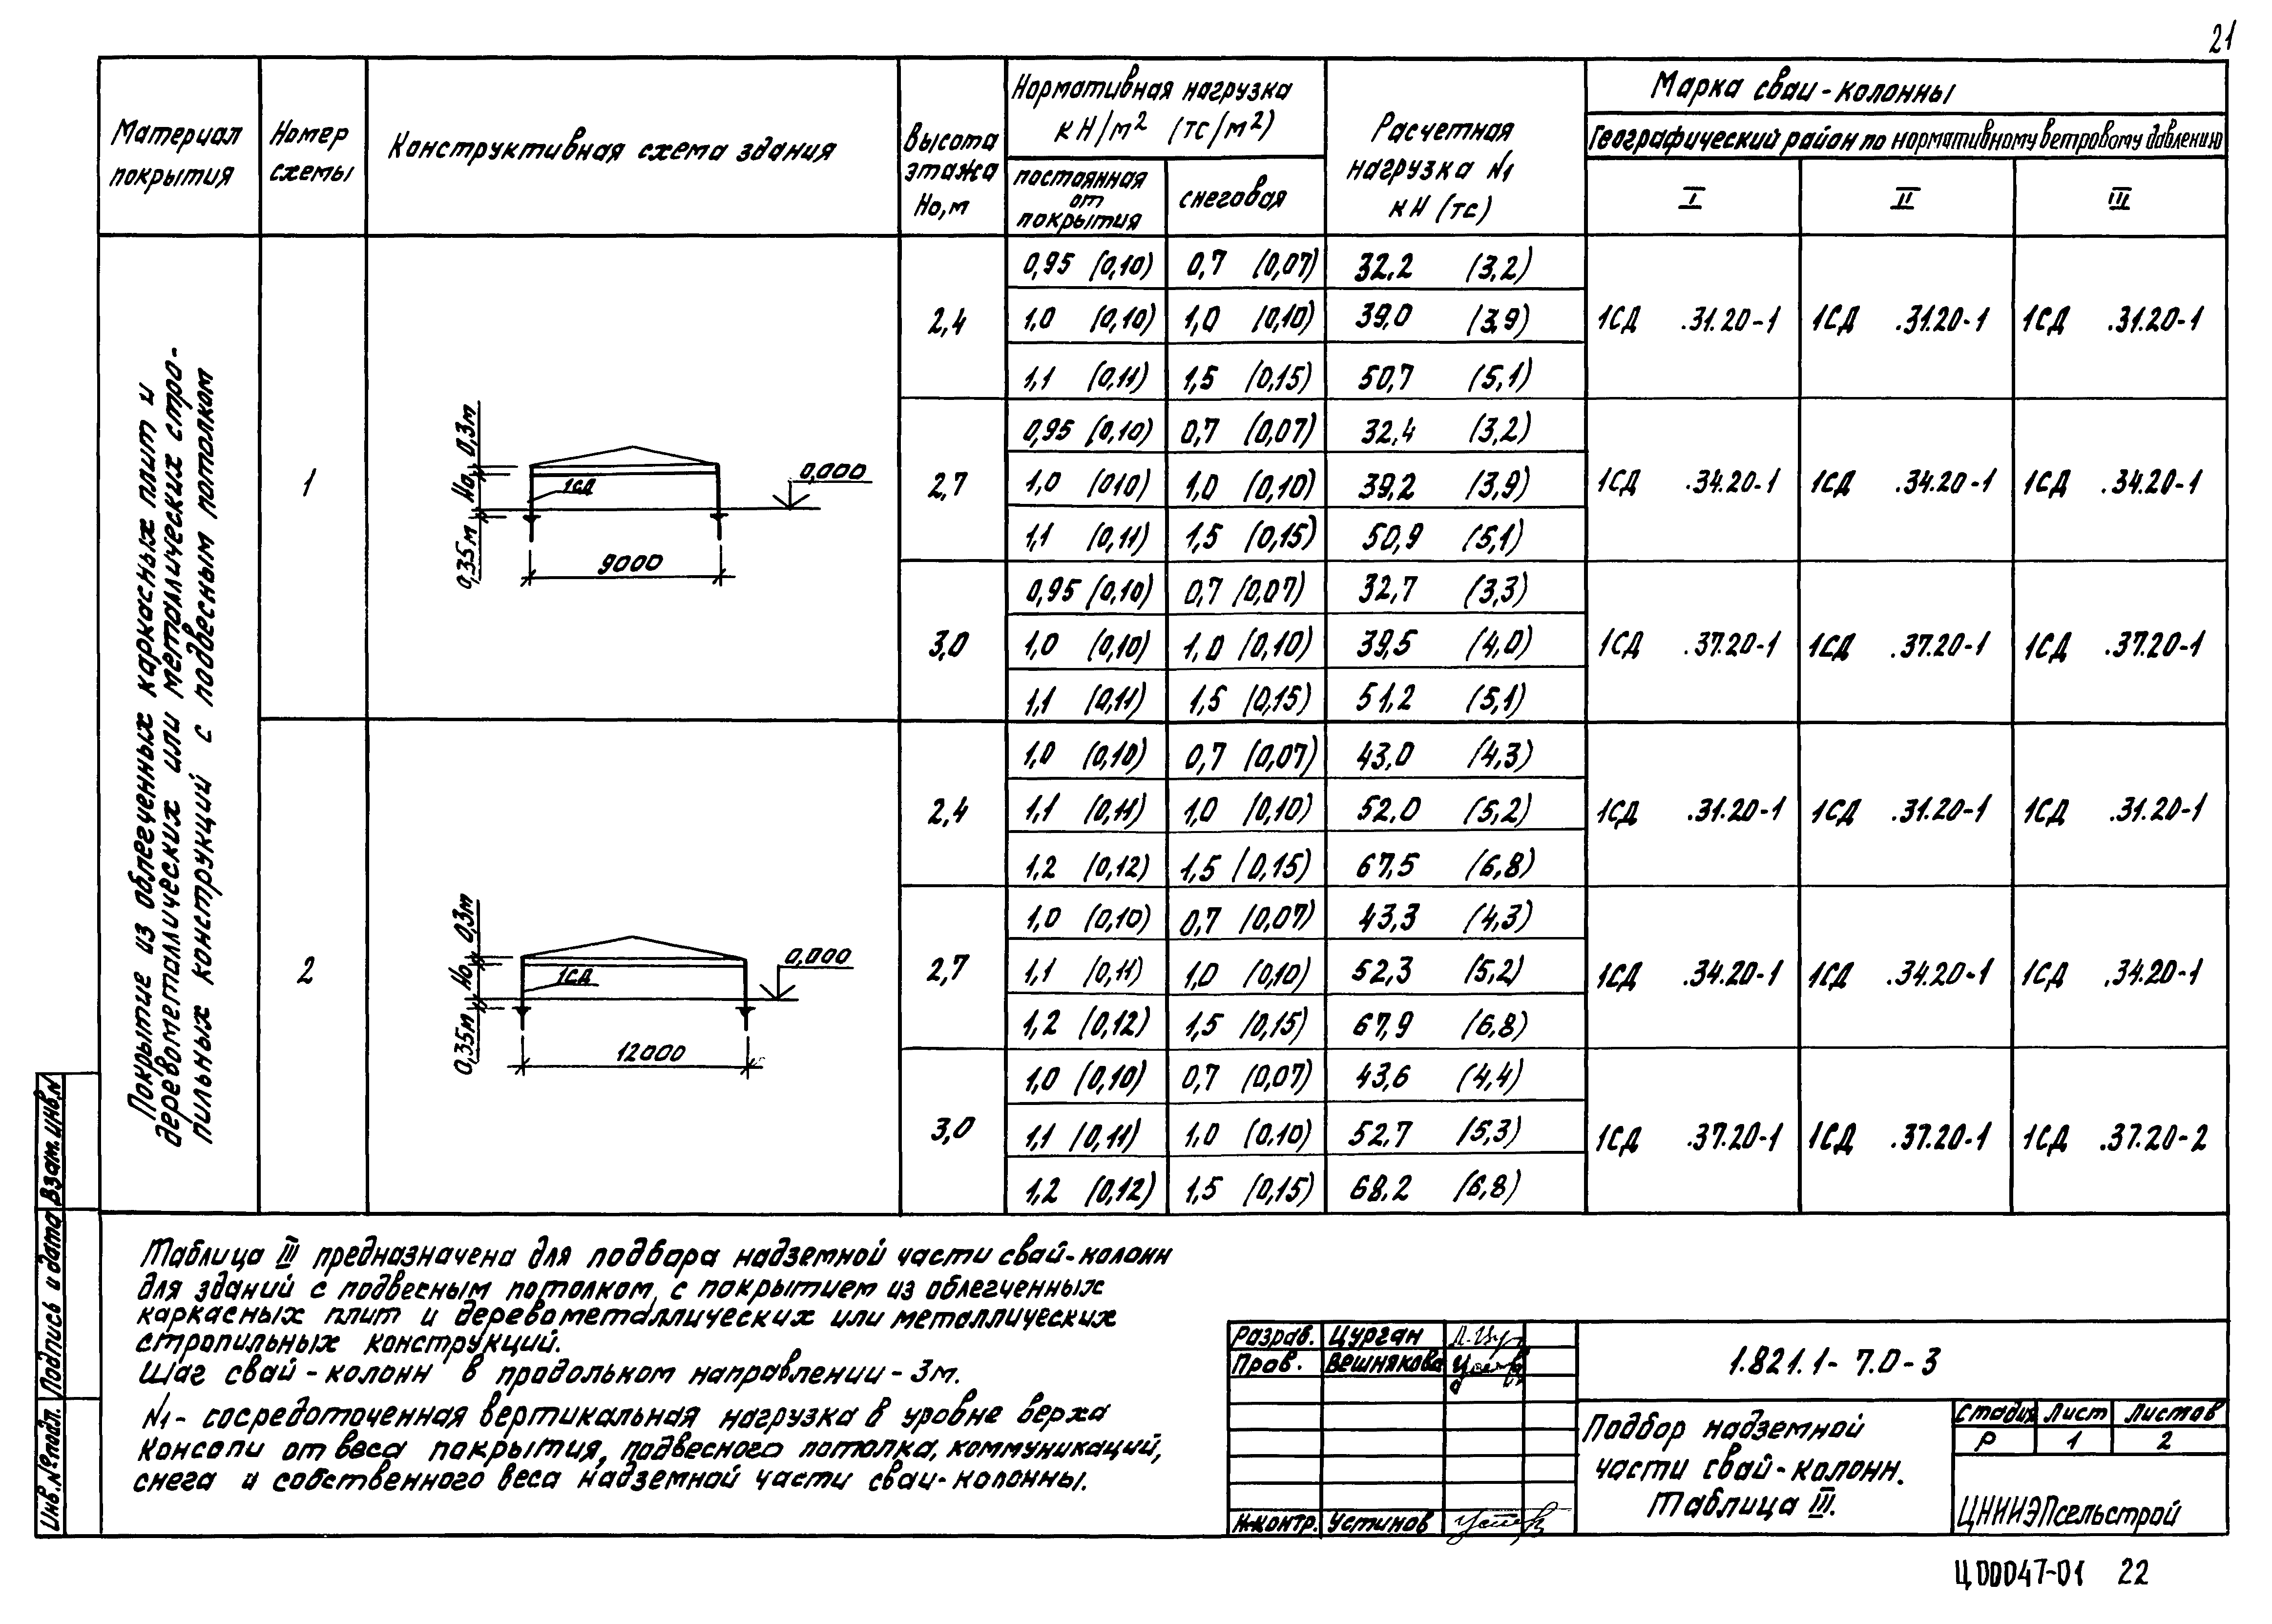 21
Материал покрытия
Номер схемы
Конструктивная схема здания
Высота этажа Но,м
Нормативная нагрузка кН/м² (тс/м²)
постоянная от покрытия
снеговая
Расчетная нагрузка N1 кН (тс)
Марка сваи-колонны
Географический район по нормативному ветровому давлению
I II III
Покрытие из облегченных каркасных плит и
деревометаллических или металлических стро-
пильных конструкций с подвесным потолком
1
0,3м
Но
0,35м
1СД
0,000
9000
2,4
0,95 (0,10) 0,7 (0,07) 32,2 (3,2)
1,0 (0,10) 1,0 (0,10) 39,0 (3,9)
1,1 (0,11) 1,5 (0,15) 50,7 (5,1)
1СД .31.20-1 1СД .31.20-1 1СД .31.20-1
2,7
0,95 (0,10) 0,7 (0,07) 32,4 (3,2)
1,0 (010) 1,0 (0,10) 39,2 (3,9)
1,1 (0,11) 1,5 (0,15) 50,9 (5,1)
1СД .34.20-1 1СД .34.20-1 1СД .34.20-1
3,0
0,95 (0,10) 0,7 (0,07) 32,7 (3,3)
1,0 (0,10) 1,0 (0,10) 39,5 (4,0)
1,1 (0,11) 1,5 (0,15) 51,2 (5,1)
1СД .37.20-1 1СД .37.20-1 1СД .37.20-1
2
0,3м
Но
0,35м
1СД
0,000
12000
2,4
1,0 (0,10) 0,7 (0,07) 43,0 (4,3)
1,1 (0,11) 1,0 (0,10) 52,0 (5,2)
1,2 (0,12) 1,5 (0,15) 67,5 (6,8)
1СД .31.20-1 1СД .31.20-1 1СД .31.20-1
2,7
1,0 (0,10) 0,7 (0,07) 43,3 (4,3)
1,1 (0,11) 1,0 (0,10) 52,3 (5,2)
1,2 (0,12) 1,5 (0,15) 67,9 (6,8)
1СД .34.20-1 1СД .34.20-1 1СД .34.20-1
3,0
1,0 (0,10) 0,7 (0,07) 43,6 (4,4)
1,1 (0,11) 1,0 (0,10) 52,7 (5,3)
1,2 (0,12) 1,5 (0,15) 68,2 (6,8)
1СД .37.20-1 1СД .37.20-1 1СД .37.20-2
Таблица III предназначена для подбора надземной части свай-колонн
для зданий с подвесным потолком, с покрытием из облегченных
каркасных плит и деревометаллических или металлических
стропильных конструкций.
Шаг свай-колонн в продольном направлении-3м.
N1- сосредоточенная вертикальная нагрузка в уровне верха
консоли от веса покрытия, подвесного потолка, коммуникаций,
снега и собственного веса надземной части сваи-колонны.
Взам.инв.N
Подпись и дата
Инв.№подл.
Разраб. Цурган
Пров. Вешнякова
Н.контр. Устинов
1.821.1-7.0-3
Подбор надземной
части свай-колонн.
Таблица III.
Стадия Лист Листов
Р 1 2
ЦНИИЭПсельстрой
Ц00047-01 22